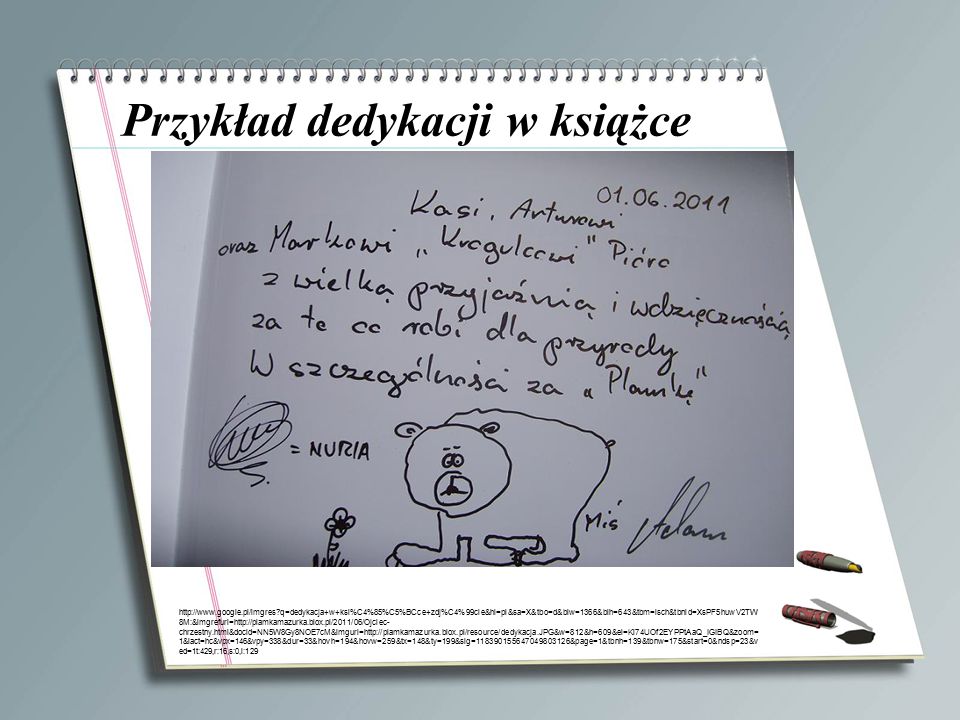 Przykład dedykacji w książce
01.06.2011
Kasi, Arturowi
oraz Markowi „Krogulcowi" Pióro
z wielką przyjaźnią i wdzięcznością
za to co robi dla przyrody
W szczególności za „Plamkę"
= NURIA
Miś
Adam
http://www.google.pl/imgres?q=dedykacja+w+ksi%C4%85%C5%BCce+zdj%C4%99cie&hl=pl&sa=X&tbo=d&biw=1366&bih=643&tbm=isch&tbnid=XsPF5huwV2TW
8M:&imgrefurl=http://plamkamazurka.blox.pl/2011/06/Ojciec-
chrzestny.html&docid=NN5W8Gy8NOE7cM&imgurl=http://plamkamazurka.blox.pl/resource/dedykacja.JPG&w=812&h=609&ei=KI74UOf2EYPPtAaQ_IGIBQ&zoom=
1&iact=hc&vpx=146&vpy=338&dur=33&hovh=194&hovw=259&tx=148&ty=199&sig=118390155647049803126&page=1&tbnh=139&tbnw=175&start=0&ndsp=23&v
ed=1t:429,r:16,s:0,i:129